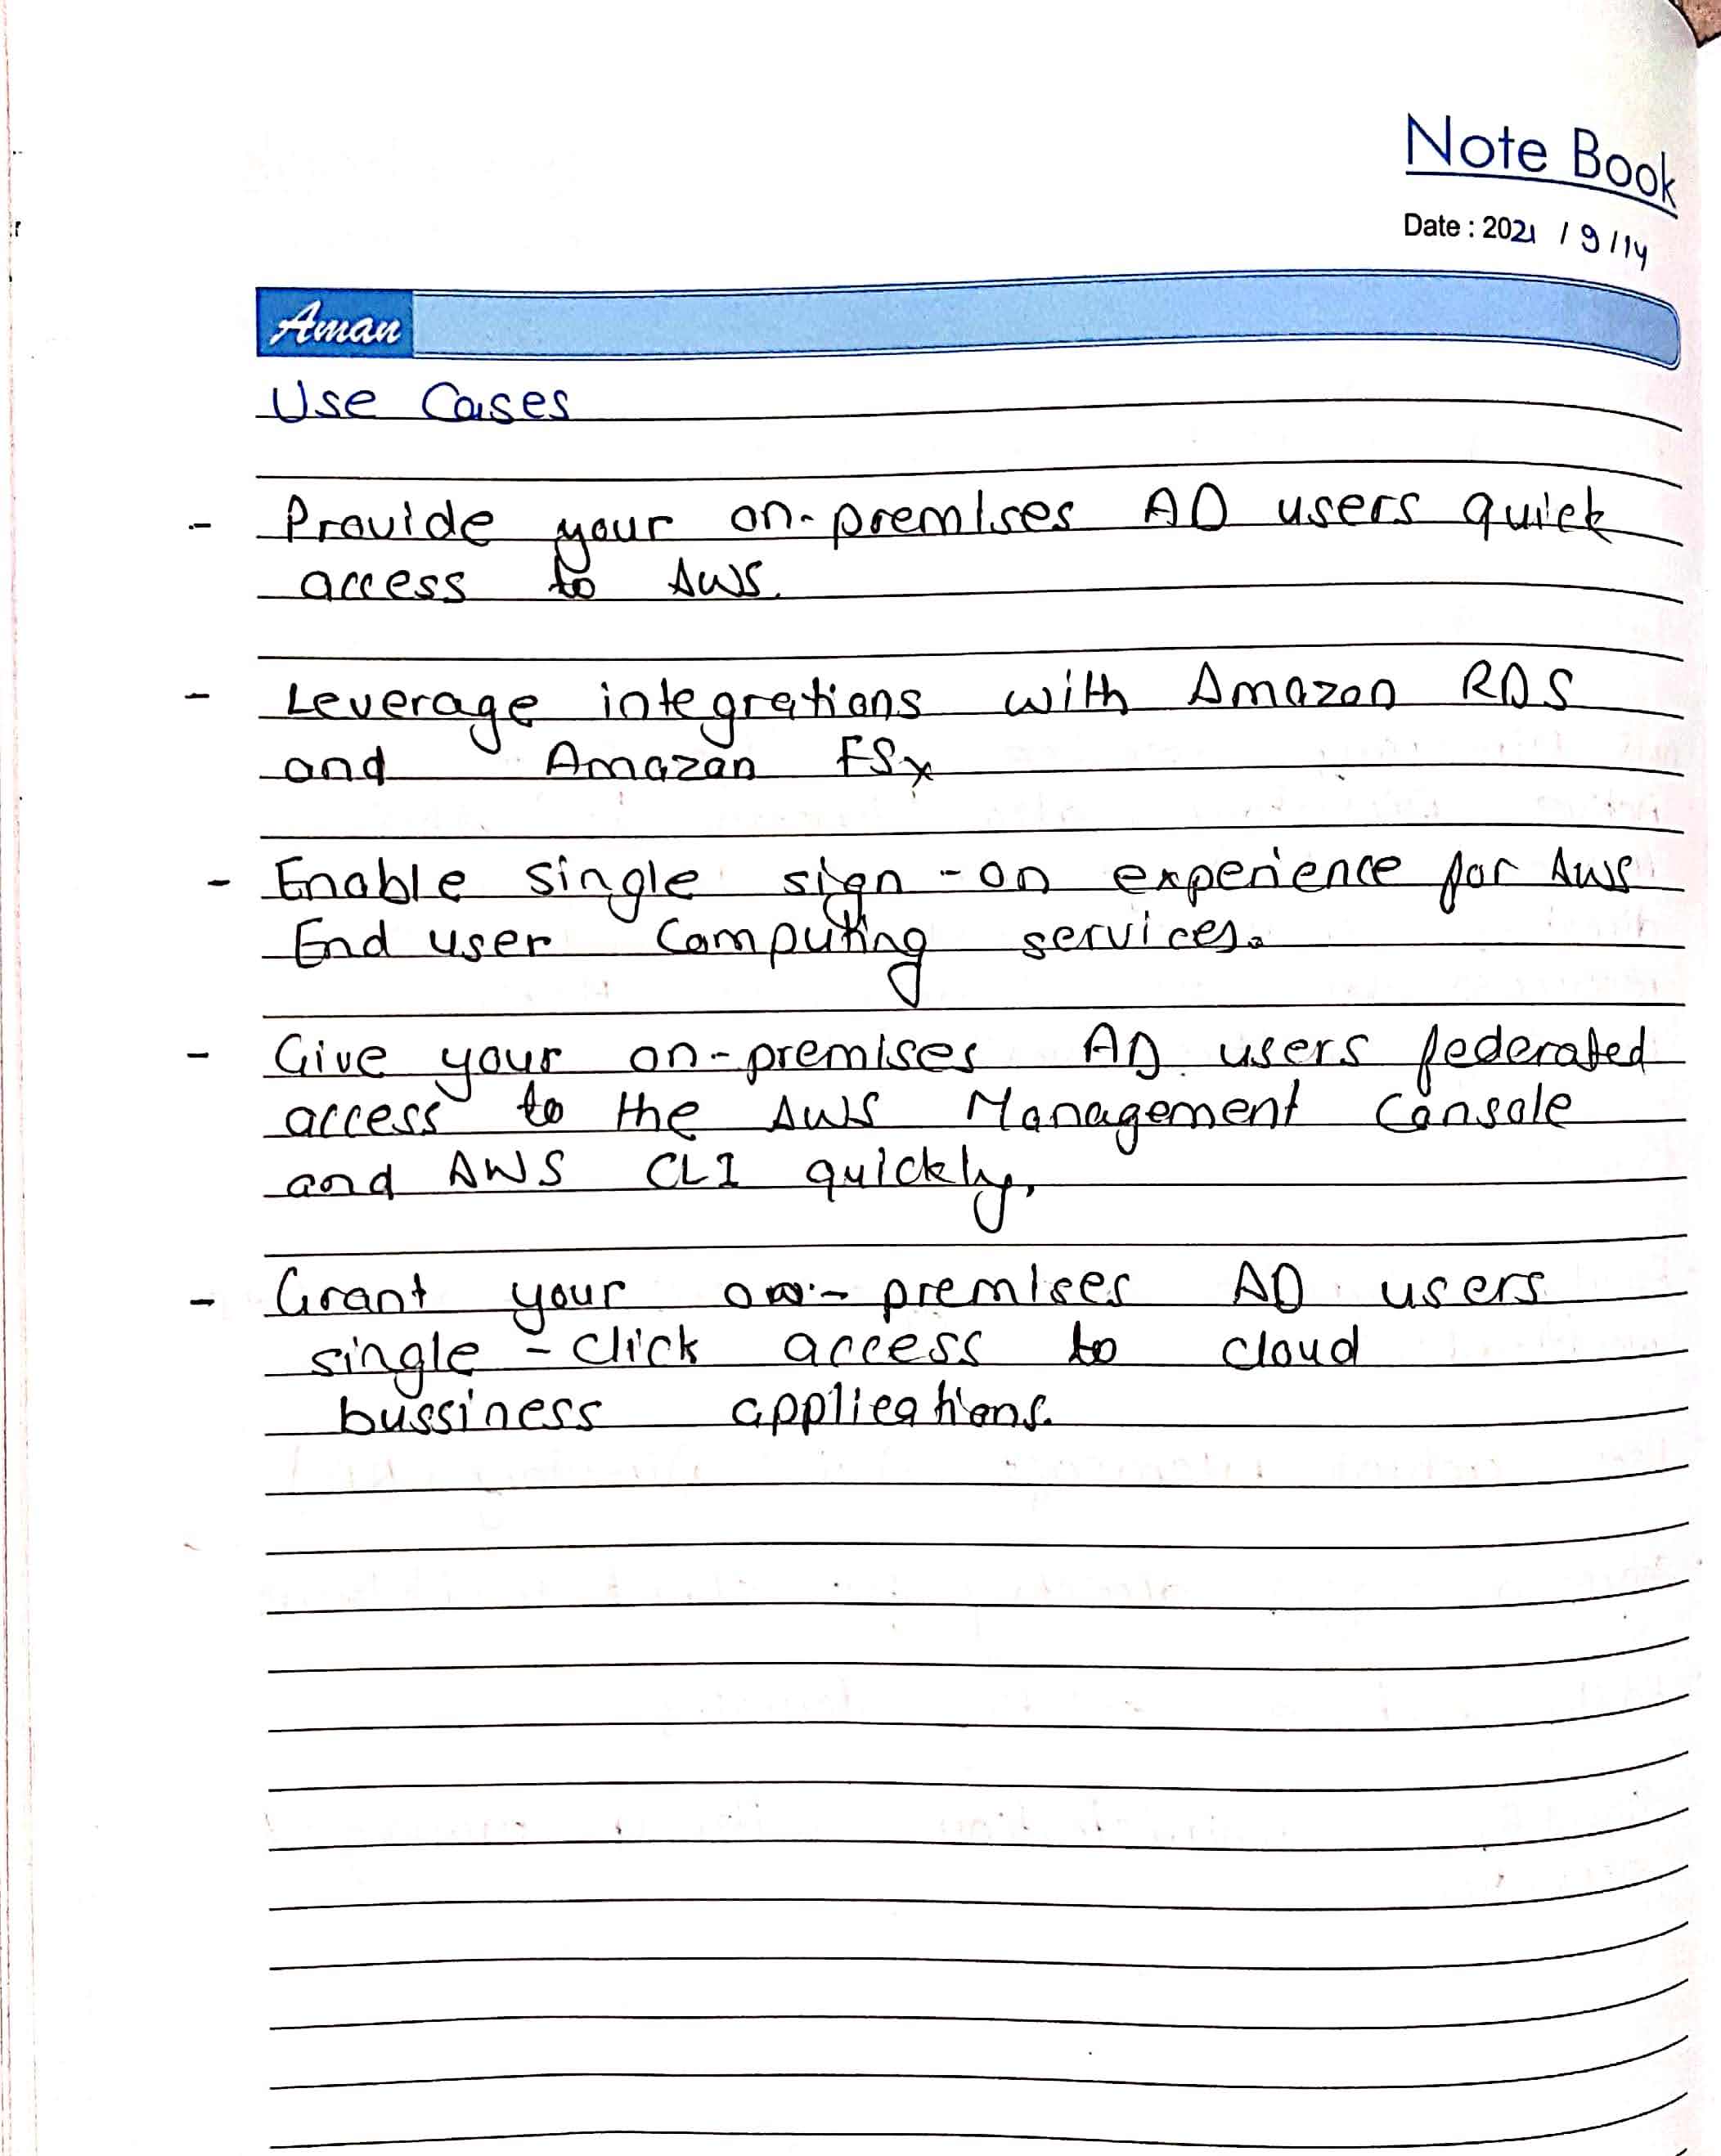 Note Book
Date : 2021 / 9 / 14
Aman
Use Cases
- Provide your on-premises AD users quick
access to AWS.
- Leverage integrations with Amazon RDS
and Amazon FSx
- Enable single sign-on experience for AWS
End user Computing services.
- Give your on-premises AD users federated
access to the AWS Management Console
and AWS CLI quickly.
- Grant your on-premises AD users
single-click access to cloud
bussiness applications.